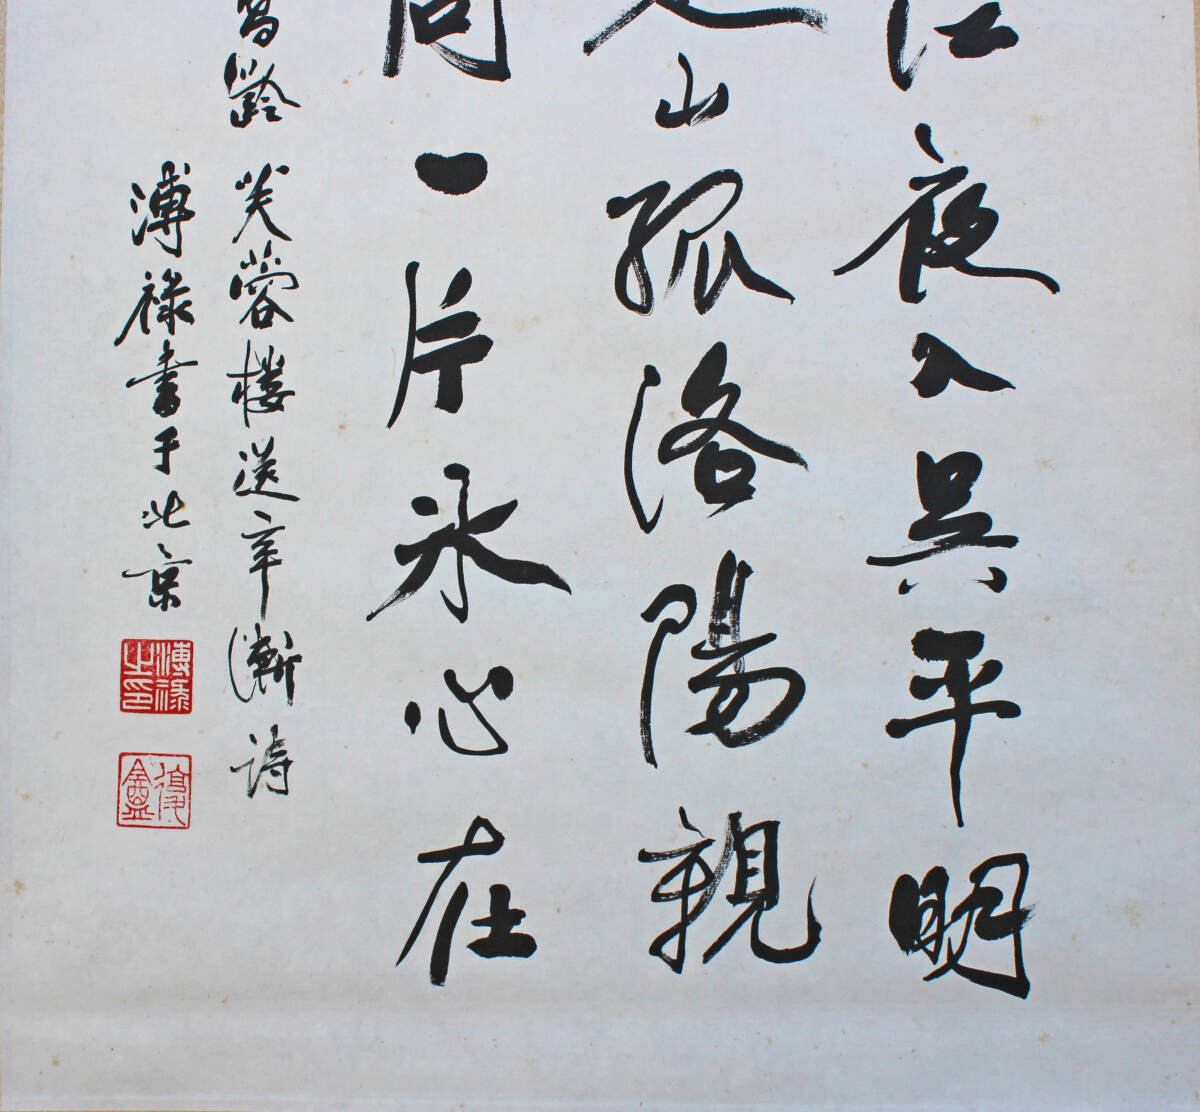 江夜入吳平明
楚山孤洛陽親
問一片氷心在
昌齡芙蓉樓送辛漸詩
溥祿書于北京
溥祿之印